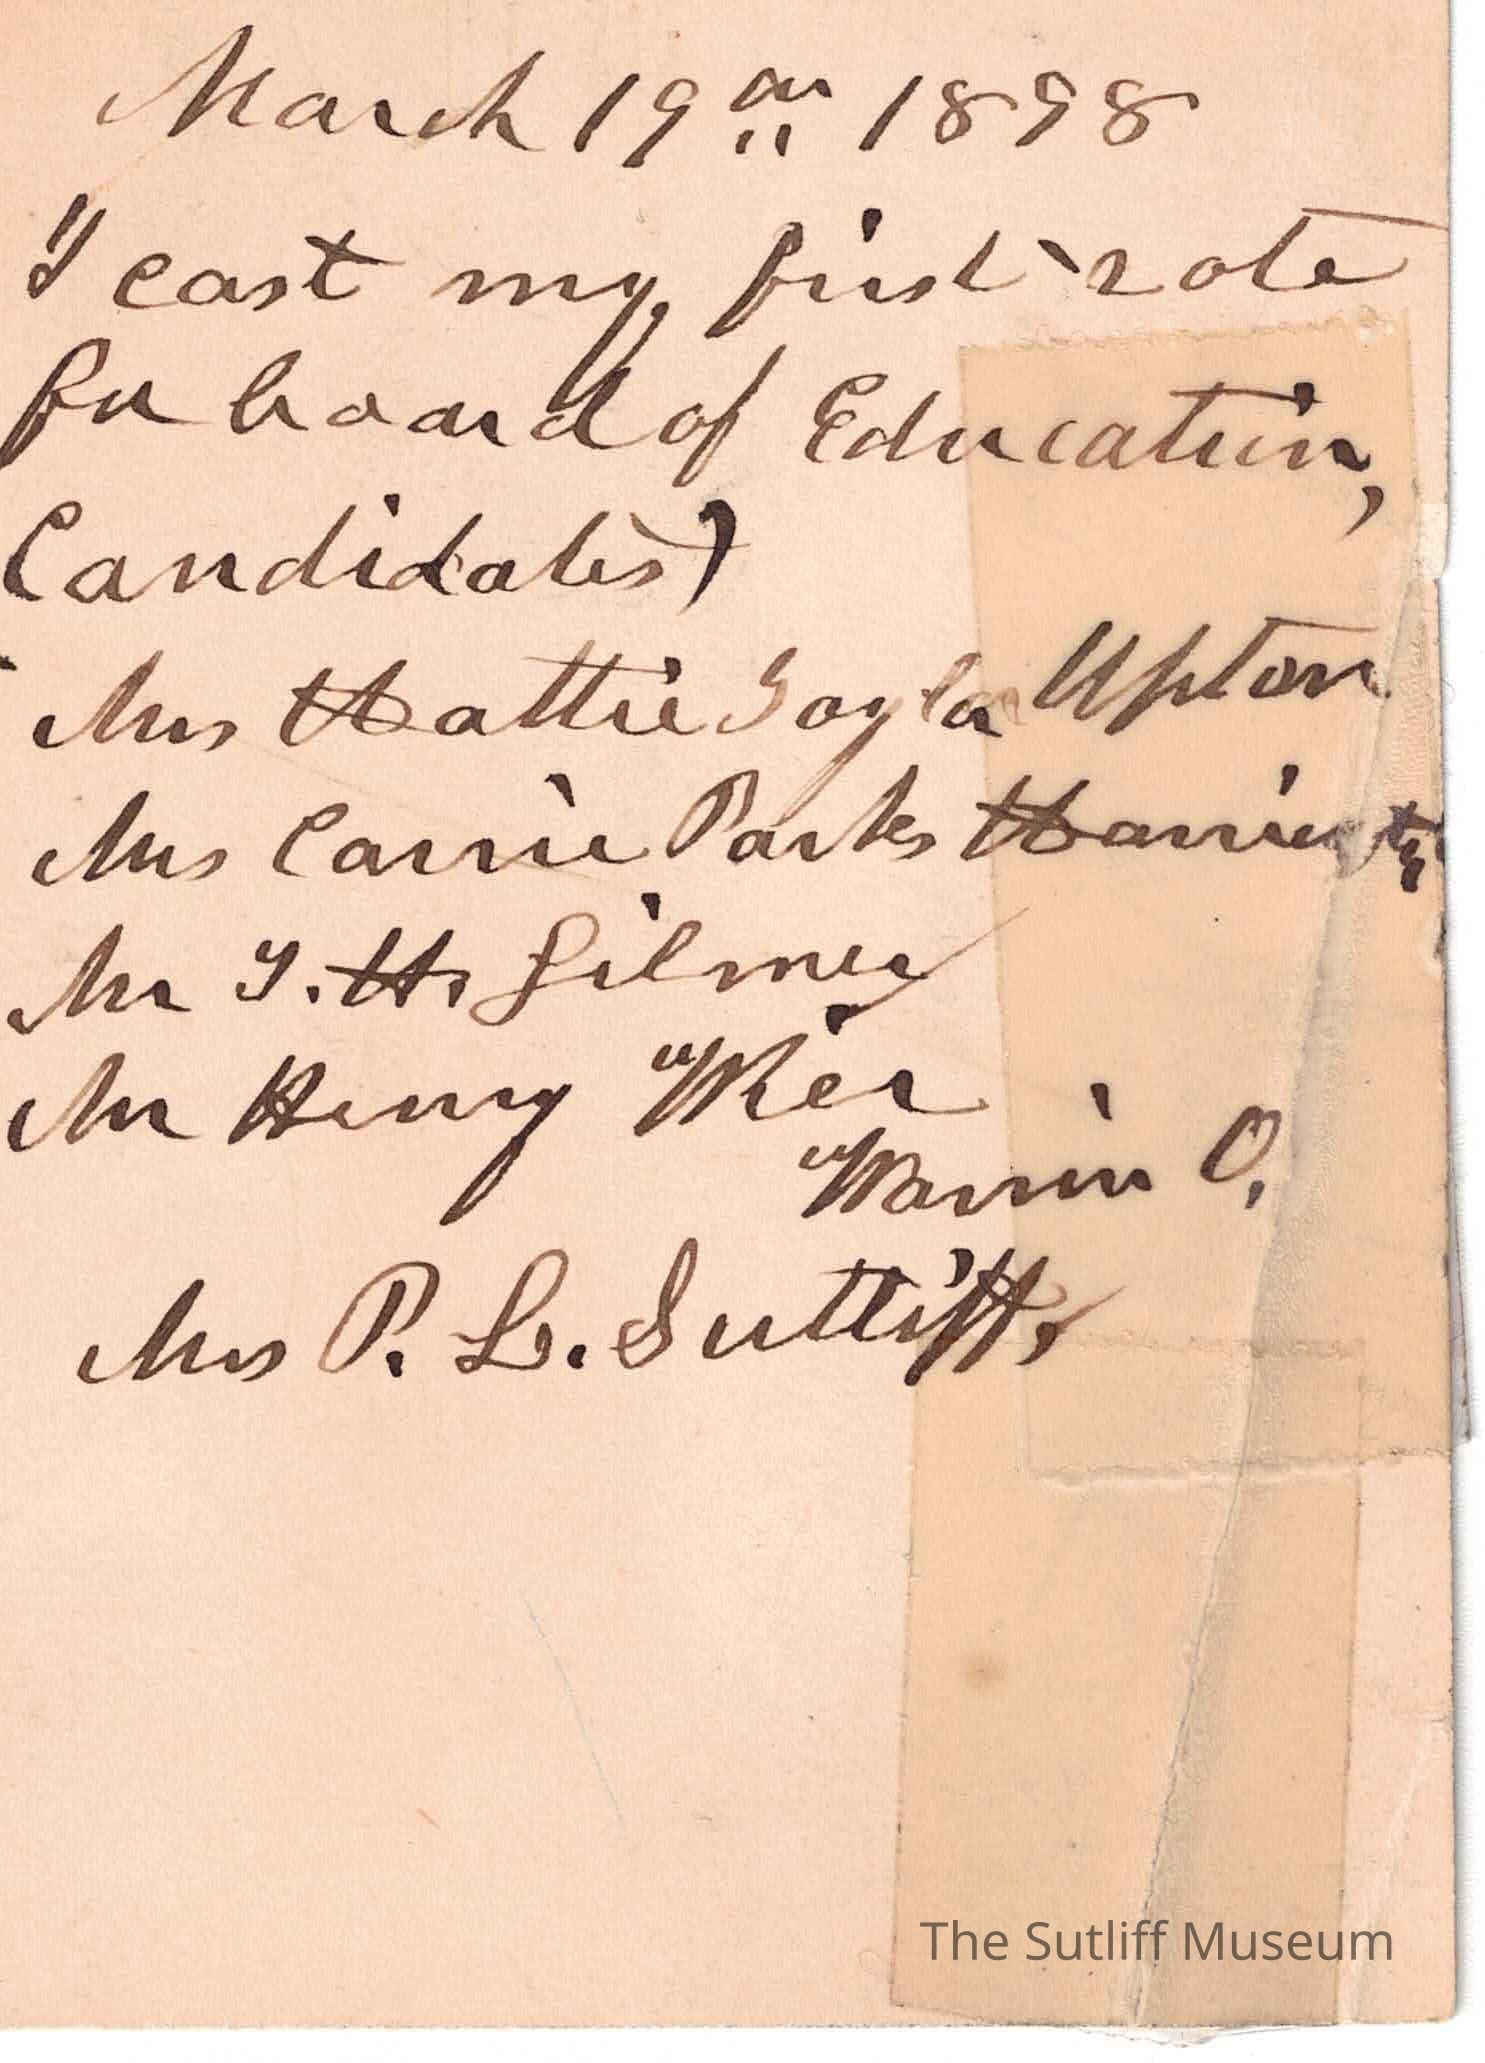 March 19 1898
I cast my first vote
for board of Education,
Candidates)
Mrs Hattie Taylor Upton
Mrs Carrie Parks Harrington
Mr T. H. Gilmer
Mr Henry Wier
Warren O.
Mrs P. L. Sutliff,
The Sutliff Museum